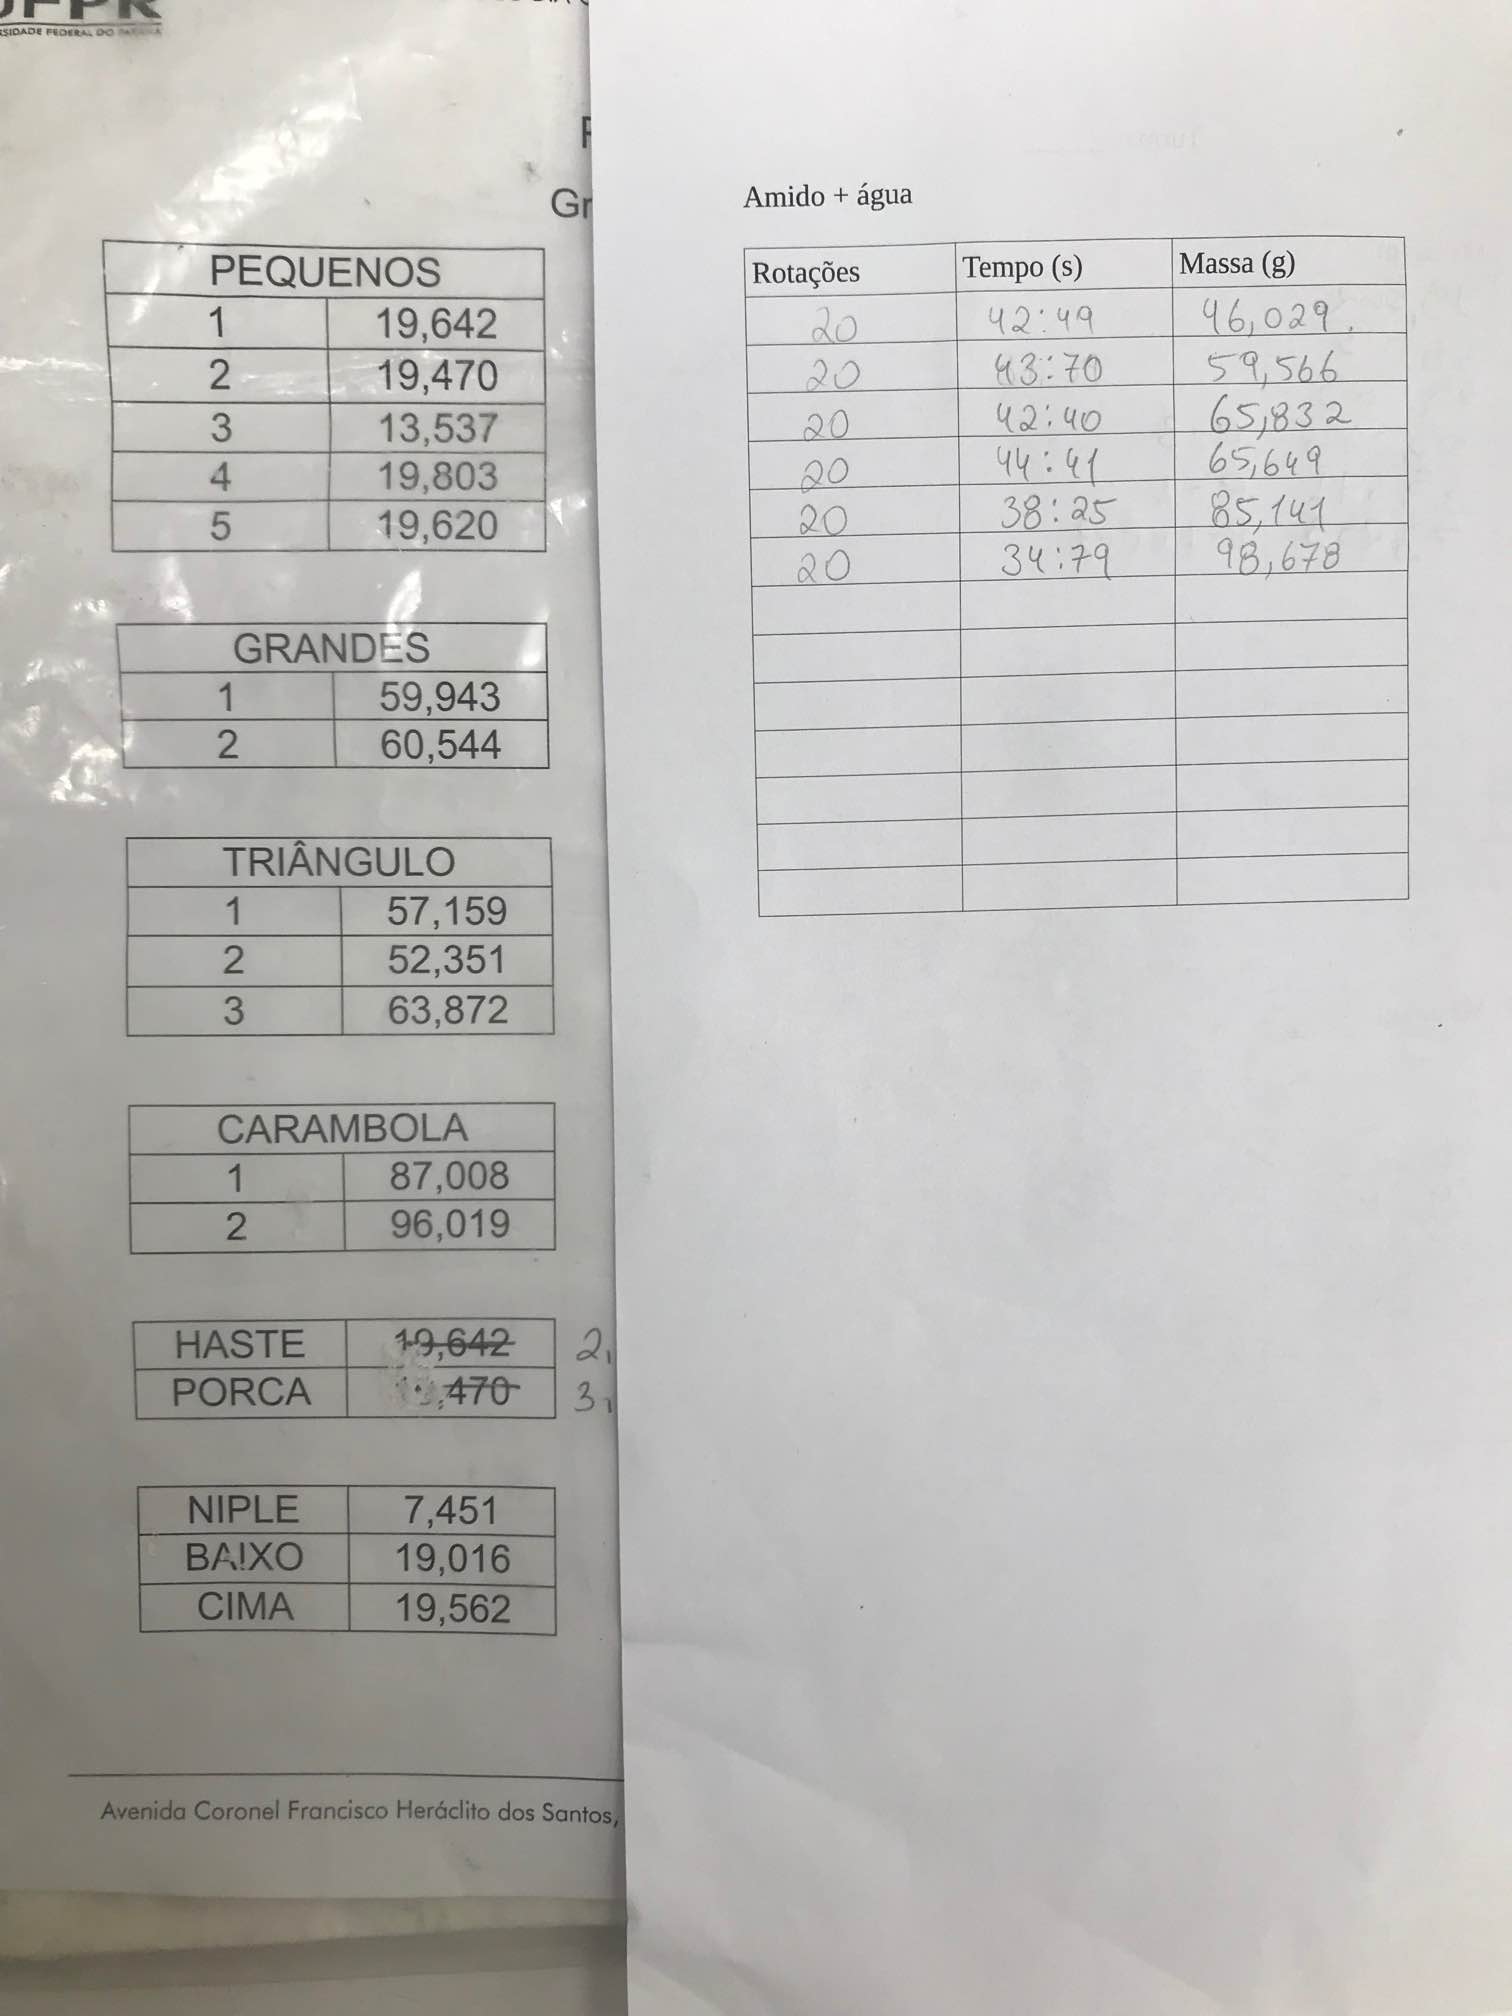 UFPR
Gr
PEQUENOS
1 19,642
2 19,470
3 13,537
4 19,803
5 19,620
GRANDES
1 59,943
2 60,544
TRIÂNGULO
1 57,159
2 52,351
3 63,872
CARAMBOLA
1 87,008
2 96,019
HASTE 19,642 2,
PORCA ,470 3,
NIPLE 7,451
BAIXO 19,016
CIMA 19,562
Avenida Coronel Francisco Heráclito dos Santos,
Amido + água
Rotações Tempo (s) Massa (g)
20 42:49 46,029.
20 43:70 59,566
20 42:40 65,832
20 44:41 65,649
20 38:25 85,141
20 34:79 98,678